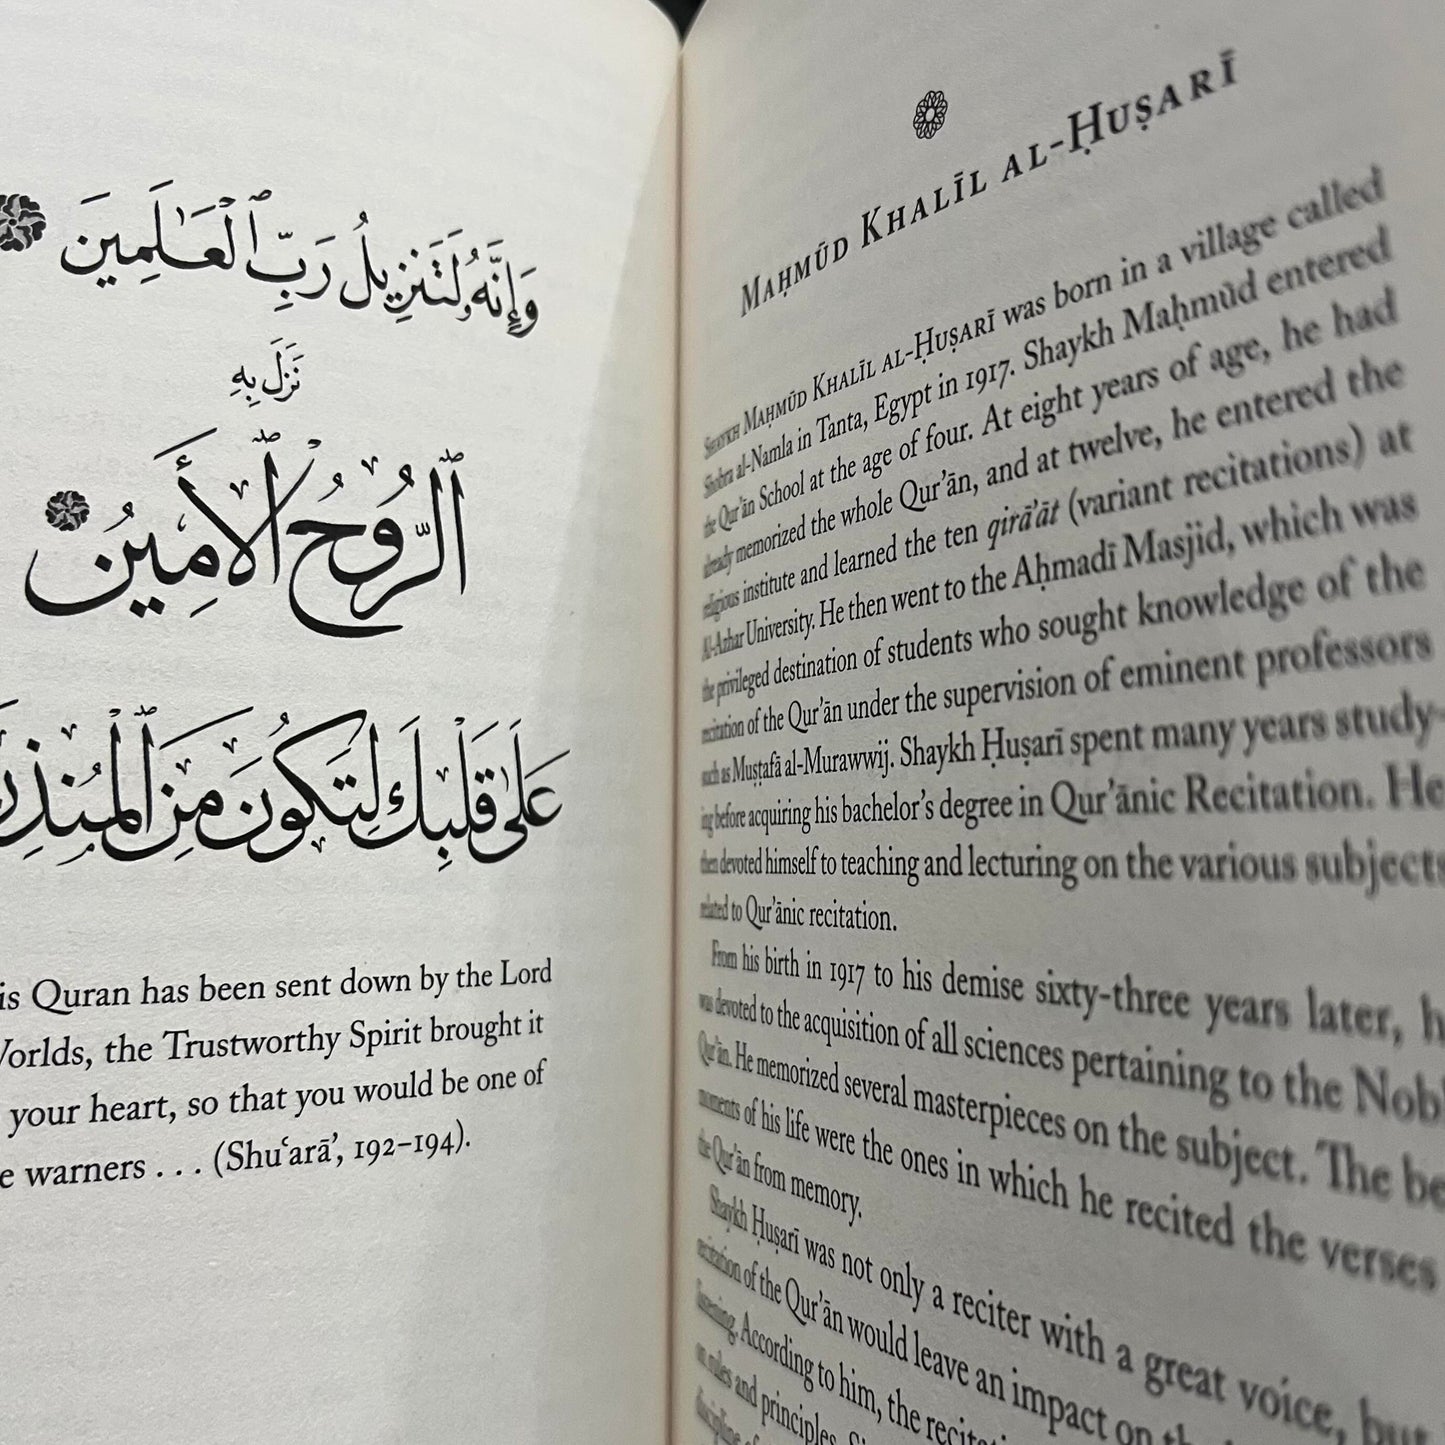 وَإِنَّهُۥ لَتَنزِيلُ رَبِّ ٱلْعَٰلَمِينَ
نَزَلَ بِهِ
ٱلرُّوحُ ٱلْأَمِينُ
عَلَىٰ قَلْبِكَ لِتَكُونَ مِنَ
is Quran has been sent down by the Lord
Worlds, the Trustworthy Spirit brought it
your heart, so that you would be one of
e warners . . . (Shuʿarāʾ, 192–194).
Maḥmūd Khalīl al-Ḥuṣarī
Shaykh Maḥmūd Khalīl al-Ḥuṣarī was born in a village called
Shobra al-Namla in Tanta, Egypt in 1917. Shaykh Maḥmūd entered
the Qur’ān School at the age of four. At eight years of age, he had
already memorized the whole Qur’ān, and at twelve, he entered the
religious institute and learned the ten qirā’āt (variant recitations) at
Al-Azhar University. He then went to the Aḥmadī Masjid, which was
the privileged destination of students who sought knowledge of the
recitation of the Qur’ān under the supervision of eminent professors
such as Muṣṭafā al-Murawwij. Shaykh Ḥuṣarī spent many years study-
ing before acquiring his bachelor’s degree in Qur’ānic Recitation. He
then devoted himself to teaching and lecturing on the various subjects
related to Qur’ānic recitation.
From his birth in 1917 to his demise sixty-three years later, h
was devoted to the acquisition of all sciences pertaining to the Nobl
Qur’ān. He memorized several masterpieces on the subject. The be
moments of his life were the ones in which he recited the verses
the Qur’ān from memory.
Shaykh Ḥuṣarī was not only a reciter with a great voice, but
recitation of the Qur’ān would leave an impact on
listening. According to him, the recita
on rules and principles.
discipline of